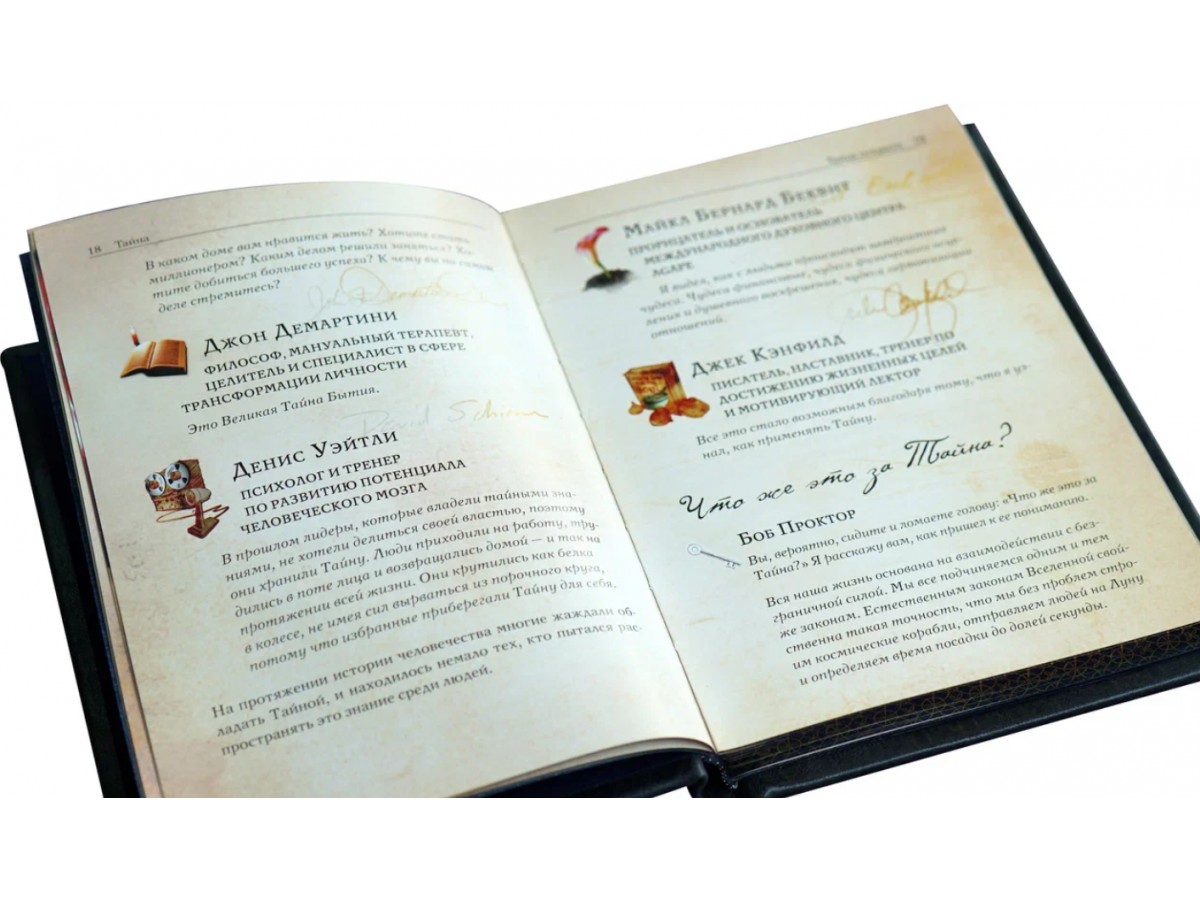 18 Тайна
В каком доме вам нравится жить? Хотите стать
миллионером? Каким делом решили заняться? Хо-
тите добиться большего успеха? К чему вы на самом
деле стремитесь?
Джон Демартини
философ, мануальный терапевт,
целитель и специалист в сфере
трансформации личности
Это Великая Тайна Бытия.
David Schirm
Денис Уэйтли
психолог и тренер
по развитию потенциала
человеческого мозга
В прошлом лидеры, которые владели тайными зна-
ниями, не хотели делиться своей властью, поэтому
они хранили Тайну. Люди приходили на работу, тру-
дились в поте лица и возвращались домой — и так на
протяжении всей жизни. Они крутились как белка
в колесе, не имея сил вырваться из порочного круга,
потому что избранные приберегали Тайну для себя.
На протяжении истории человечества многие жаждали об-
ладать Тайной, и находилось немало тех, кто пытался рас-
пространять это знание среди людей.
19
Майкл Бернард Беквит
прорицатель и основатель
международного духовного центра
Agape
Я видел, как с людьми происходят настоящие
чудеса. Чудеса финансовые, чудеса физического исце-
ления и душевного воскрешения, чудеса гармонизации
отношений.
Джек Кэнфилд
писатель, наставник, тренер по
достижению жизненных целей
и мотивирующий лектор
Все это стало возможным благодаря тому, что я уз-
нал, как применять Тайну.
Что же это за Тайна?
Боб Проктор
Вы, вероятно, сидите и ломаете голову: «Что же это за
Тайна?» Я расскажу вам, как пришел к ее пониманию.
Вся наша жизнь основана на взаимодействии с без-
граничной силой. Мы все подчиняемся одним и тем
же законам. Естественным законам Вселенной свой-
ственна такая точность, что мы без проблем стро-
им космические корабли, отправляем людей на Луну
и определяем время посадки до долей секунды.